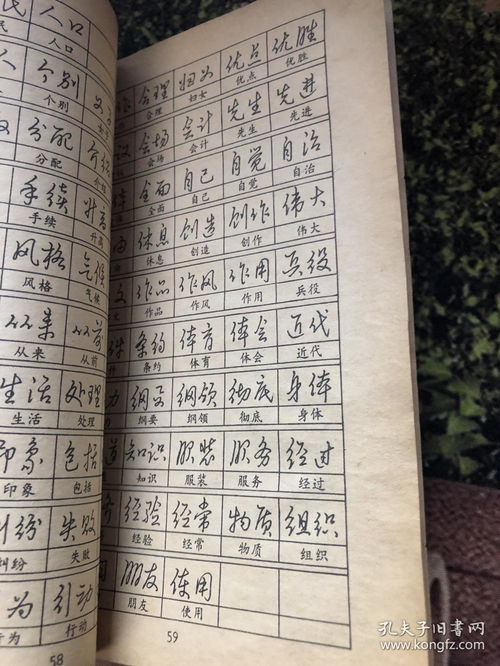 人口
人口
个别
个别
分配
分配
手续
手续
风格 气候
风格 气候
从来 从前
从来 从前
生活 处理
生活 处理
印象 包括
印象 包括
纠纷 失败
纠纷 失败
行为 行动
行为 行动
58
合理 妇女 优点 优胜
合理 妇女 优点 优胜
会场 会计 先生 先进
会场 会计 先生 先进
全面 自己 自觉 自治
全面 自己 自觉 自治
休息 创造 创作 伟大
休息 创造 创作 伟大
作品 作风 作用 兵役
作品 作风 作用 兵役
条约 体育 体会 近代
条约 体育 体会 近代
纲要 纲领 彻底 身体
纲要 纲领 彻底 身体
知识 服装 服务 经过
知识 服装 服务 经过
经验 经常 物质 组织
经验 经常 物质 组织
朋友 使用
朋友 使用
59
孔夫子旧书网
www.kongfz.com